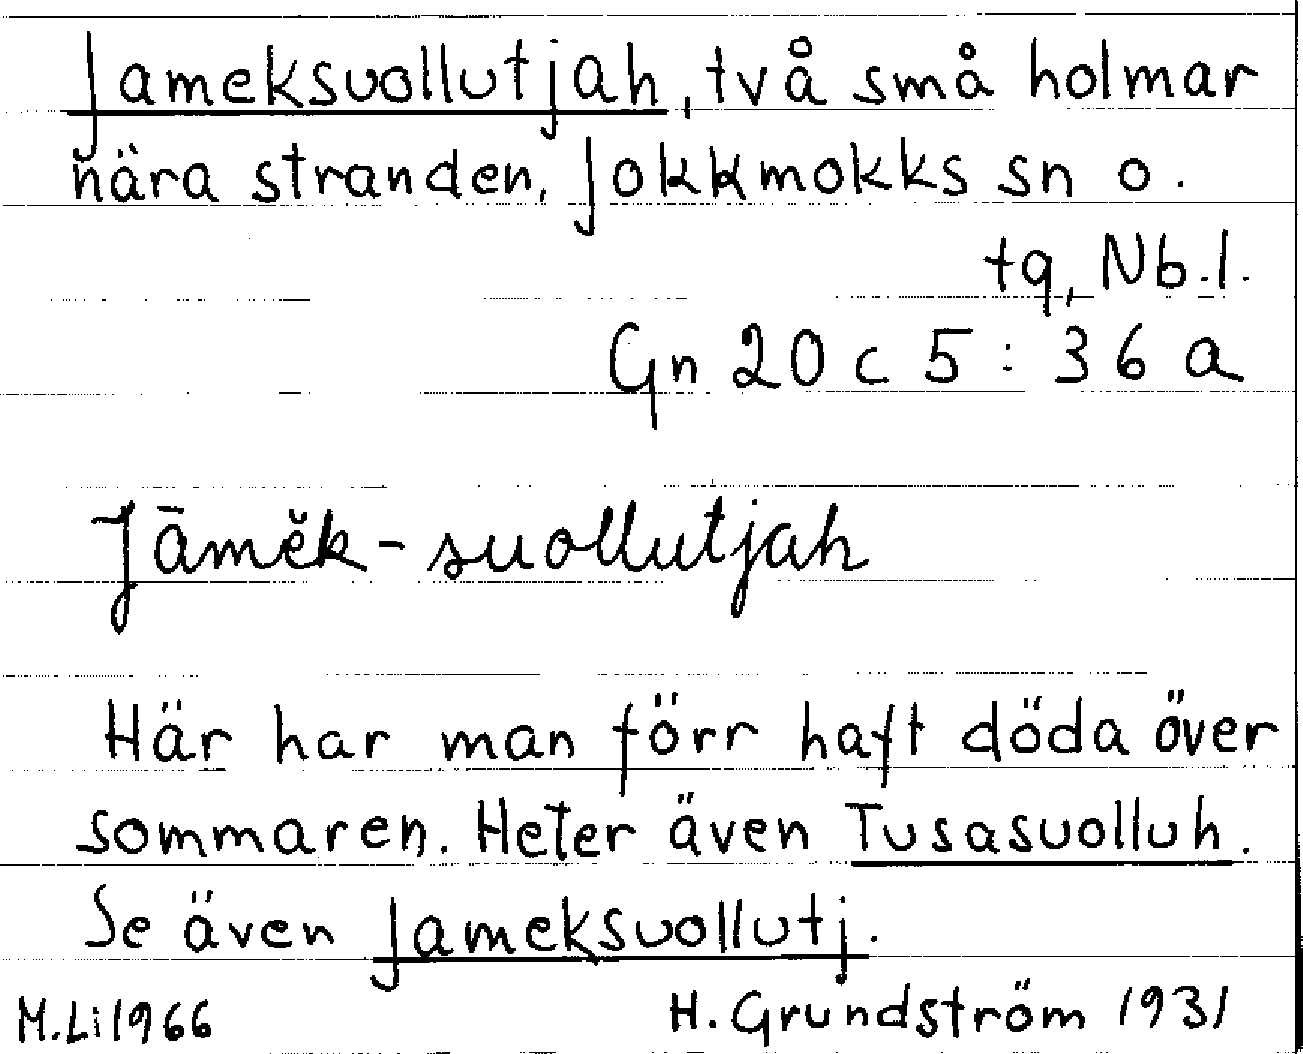 Jameksuollutjah, två små holmar
nära stranden, Jokkmokks sn o.
tg, Nb.l.
Gn 20 c 5 : 36 a
Jāmĕk-suollutjah
Här har man förr haft döda över
sommaren. Heter även Tusasuolluh.
Se även Jameksuollutj.
M.Li 1966 H. Grundström 1931